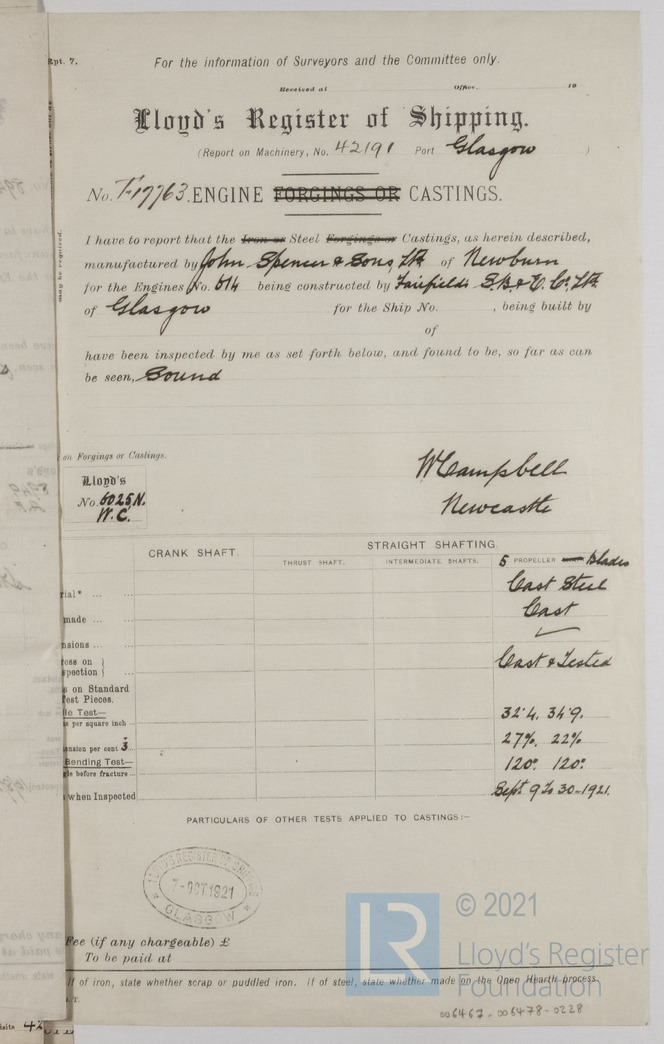 Rpt. 7.
For the information of Surveyors and the Committee only.
Received at Office, 19
Lloyd's Register of Shipping.
(Report on Machinery, No. 42191 Port Glasgow )
No. F17763. ENGINE FORGINGS OR CASTINGS.
I have to report that the Iron or Steel Forgings or Castings, as herein described,
manufactured by John Spencer & Sons, Ltd. of Newburn
for the Engines No. 614 being constructed by Fairfields S.B. & E. Co. Ltd.
of Glasgow for the Ship No. , being built by
of
have been inspected by me as set forth below, and found to be, so far as can
be seen, Sound
may be required.
on Forgings or Castings.
Lloyd's
No. 6025 N.
W.C.
W Campbell
Newcastle
CRANK SHAFT. STRAIGHT SHAFTING.
THRUST SHAFT. INTERMEDIATE SHAFTS. 5 PROPELLER Blades
rial* ... ... Cast Steel
made ... ... Cast
nsions ... ...
ross on }
spection } ... Cast & Tested
s on Standard
Test Pieces.
le Test—
s per square inch ... 32.4. 34.9.
ension per cent 3" ... 27%. 22%
Bending Test—
gle before fracture ... 120° 120°
s when Inspected Sept. 9 to 30-1921.
PARTICULARS OF OTHER TESTS APPLIED TO CASTINGS:—
LLOYD'S REGISTER OF SHIPPING
7-OCT 1921
GLASGOW
Fee (if any chargeable) £
To be paid at
If of iron, state whether scrap or puddled iron. If of steel, state whether made on the Open Hearth process.
LR
© 2021
Lloyd's Register
Foundation
006467-006478-0228